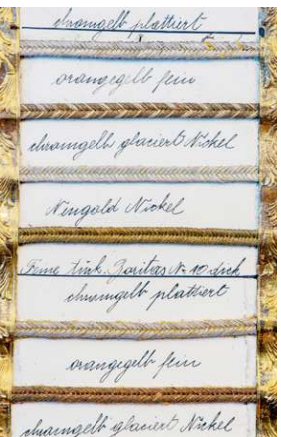 chromgelb plattiert
orangegelb fein
chromgelb glaciert Nickel
Neugold Nickel
Feine türk. No 10 dick
chromgelb plattiert
orangegelb fein
chromgelb glaciert Nickel